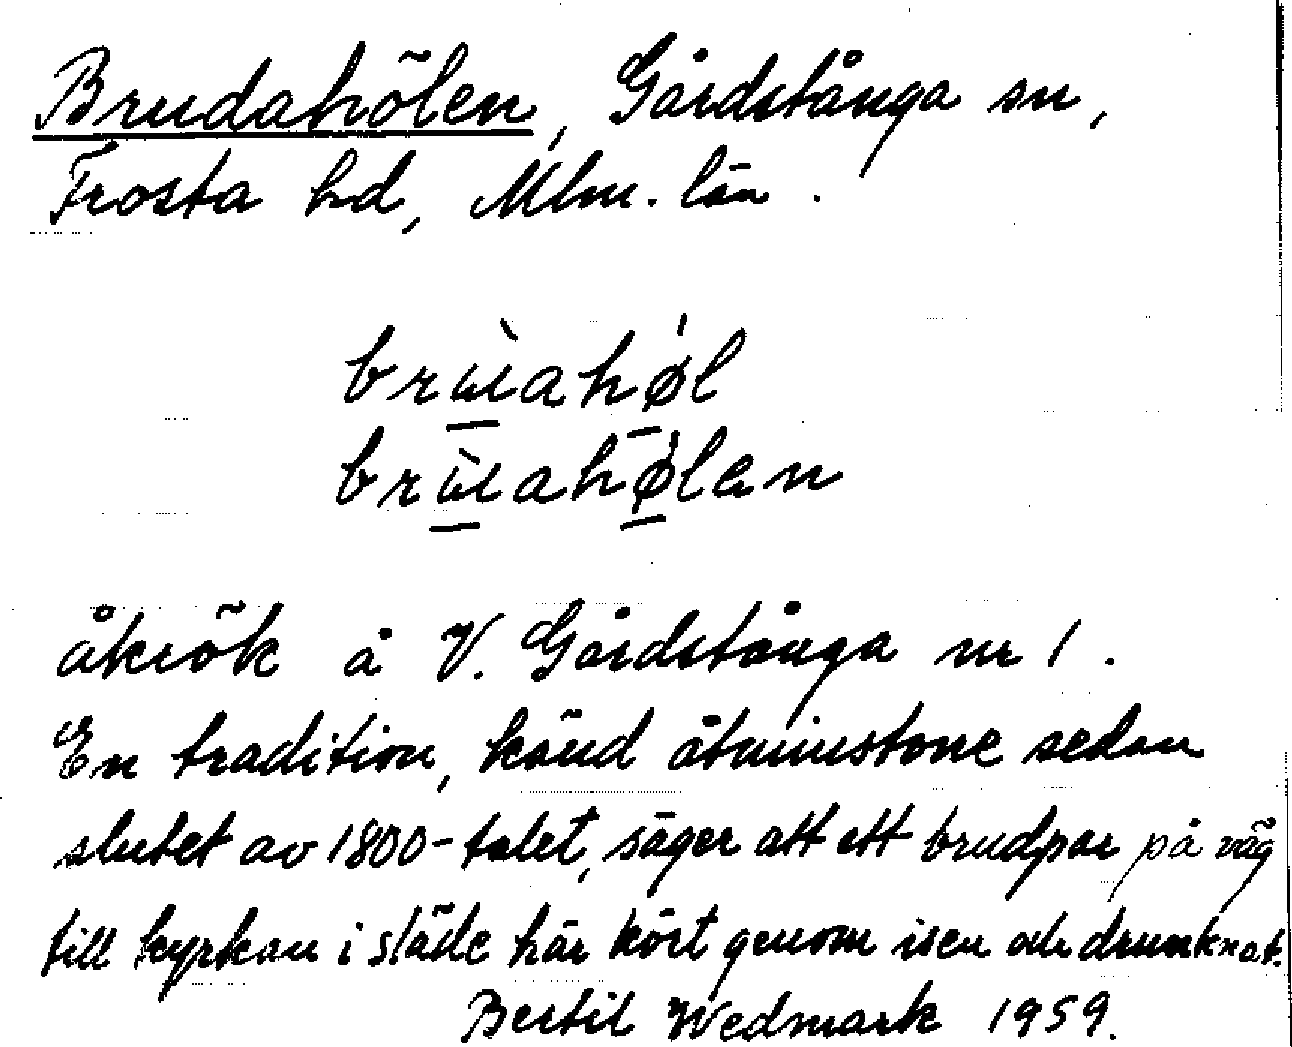 Brudahölen, Gårdstånga sn,
Frosta hd, Mlm. län.
brùahǿl
brùahǿlen
åkrök å V. Gårdstånga nr 1.
En tradition, känd åtminstone sedan
slutet av 1800-talet, säger att ett brudpar på väg
till kyrkan i släde här kört genom isen och drunknat.
Bertil Wedmark 1959.